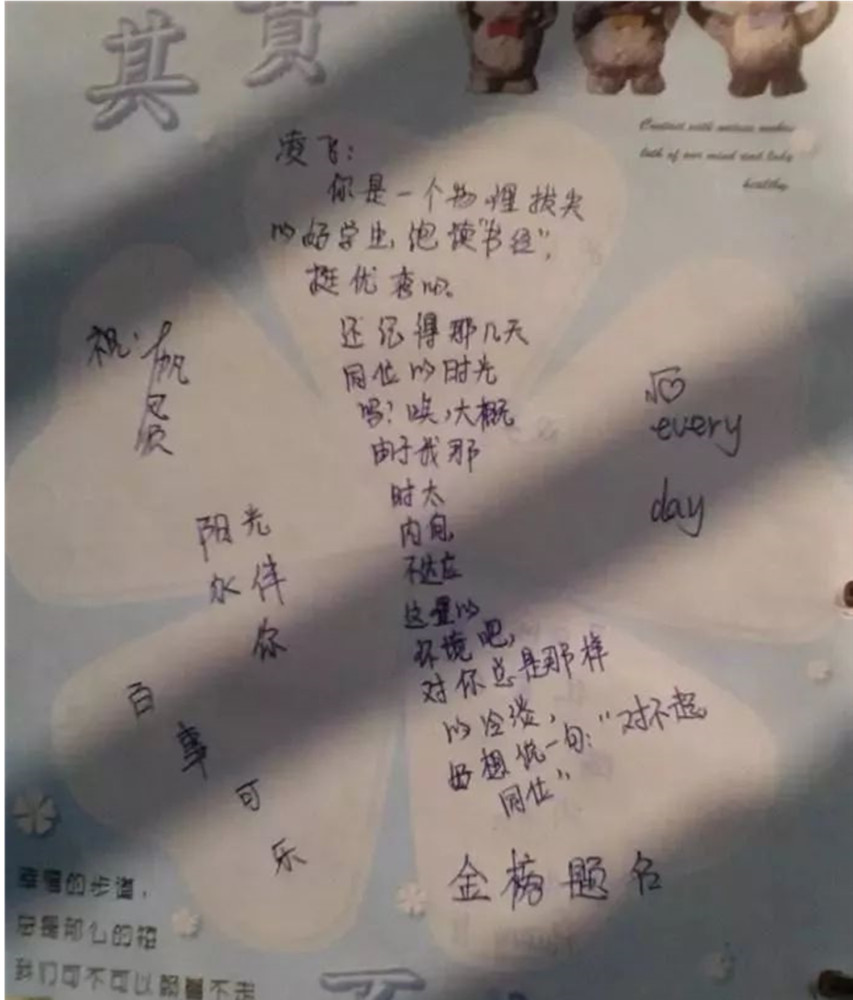 其貴
Contact with nature makes
both of our mind and body
healthy.
凌飞：
你是一个物理拔尖
的好学生，饱读“书经”，
挺优秀的。
还记得那几天
同位的时光
吗？唉，大概
由于我那
时太
内向
不适应
这里的
环境吧，
对你总是那样
的冷淡，
好想说一句：“对不起，
同位”
金榜题名
祝：
一帆
风
顺
阳光
永伴
你
百
事
可
乐
every
day
幸福的步道，
总是那么的短
我们可不可以